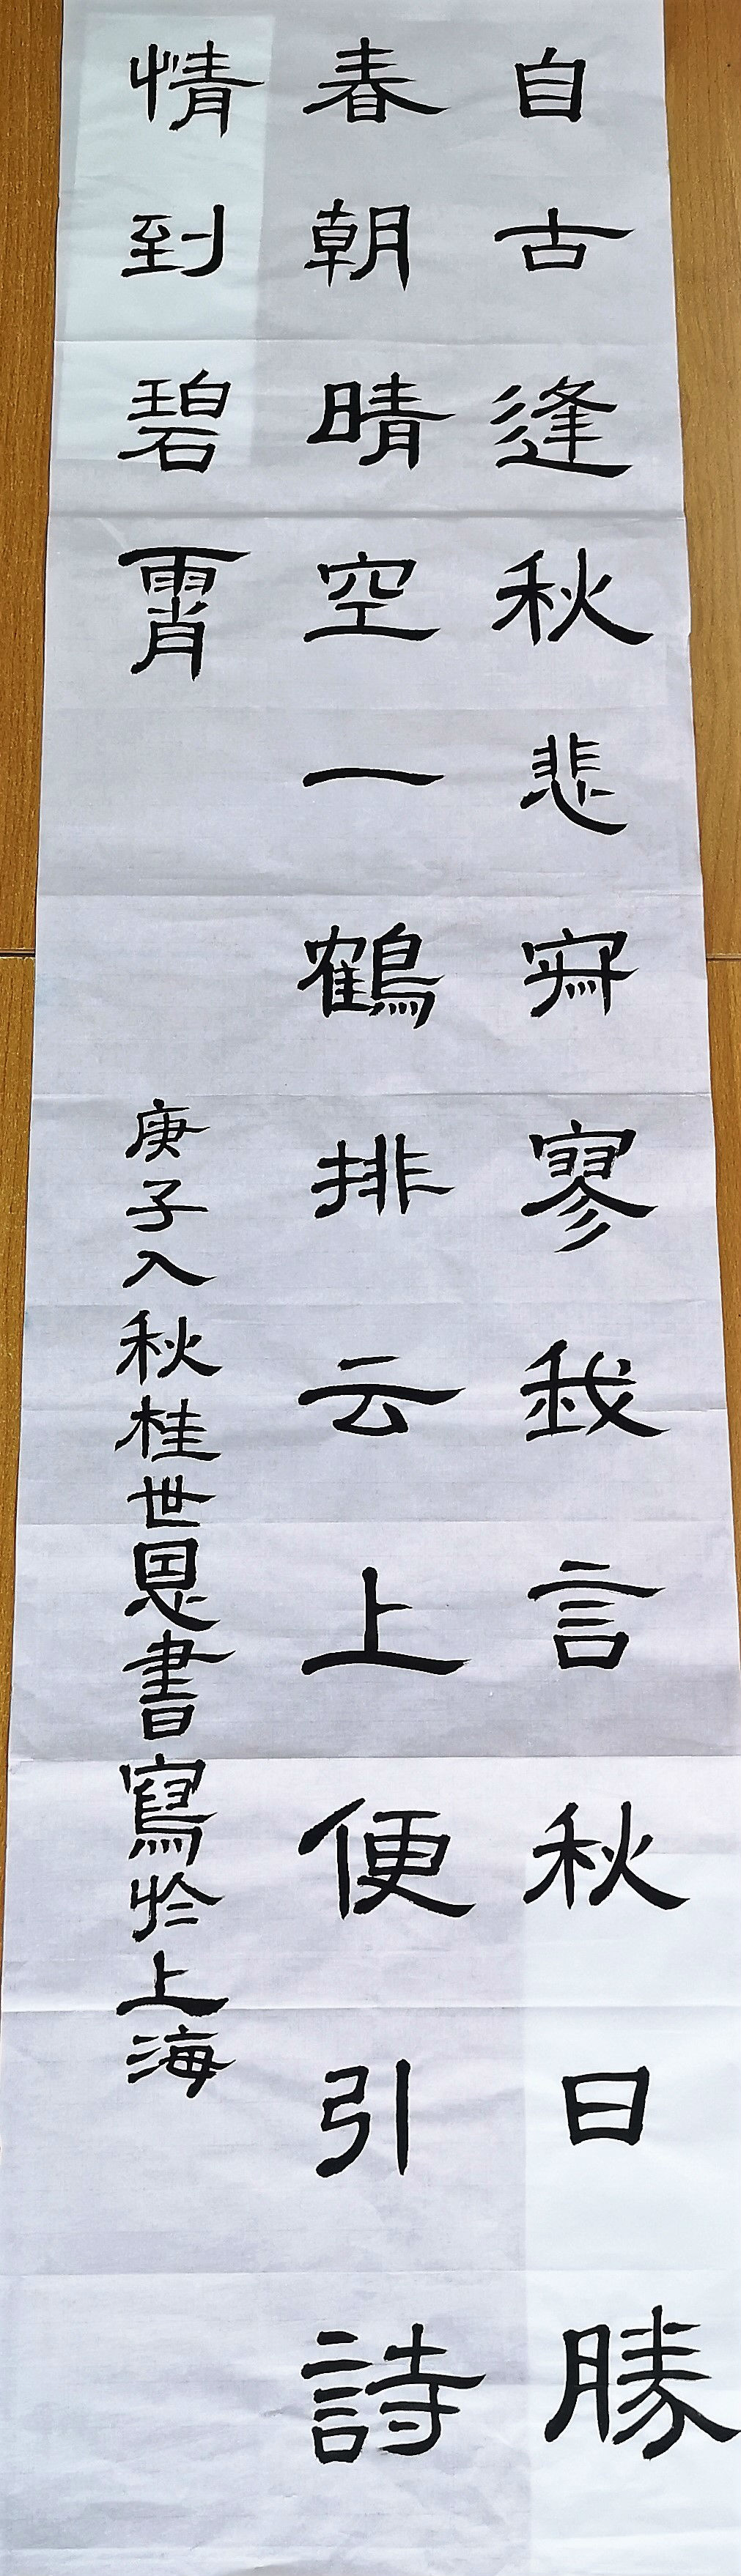 自古逢秋悲寂寥我言秋日勝
春朝晴空一鶴排云上便引詩
情到碧霄
庚子入秋桂世恩書寫於上海